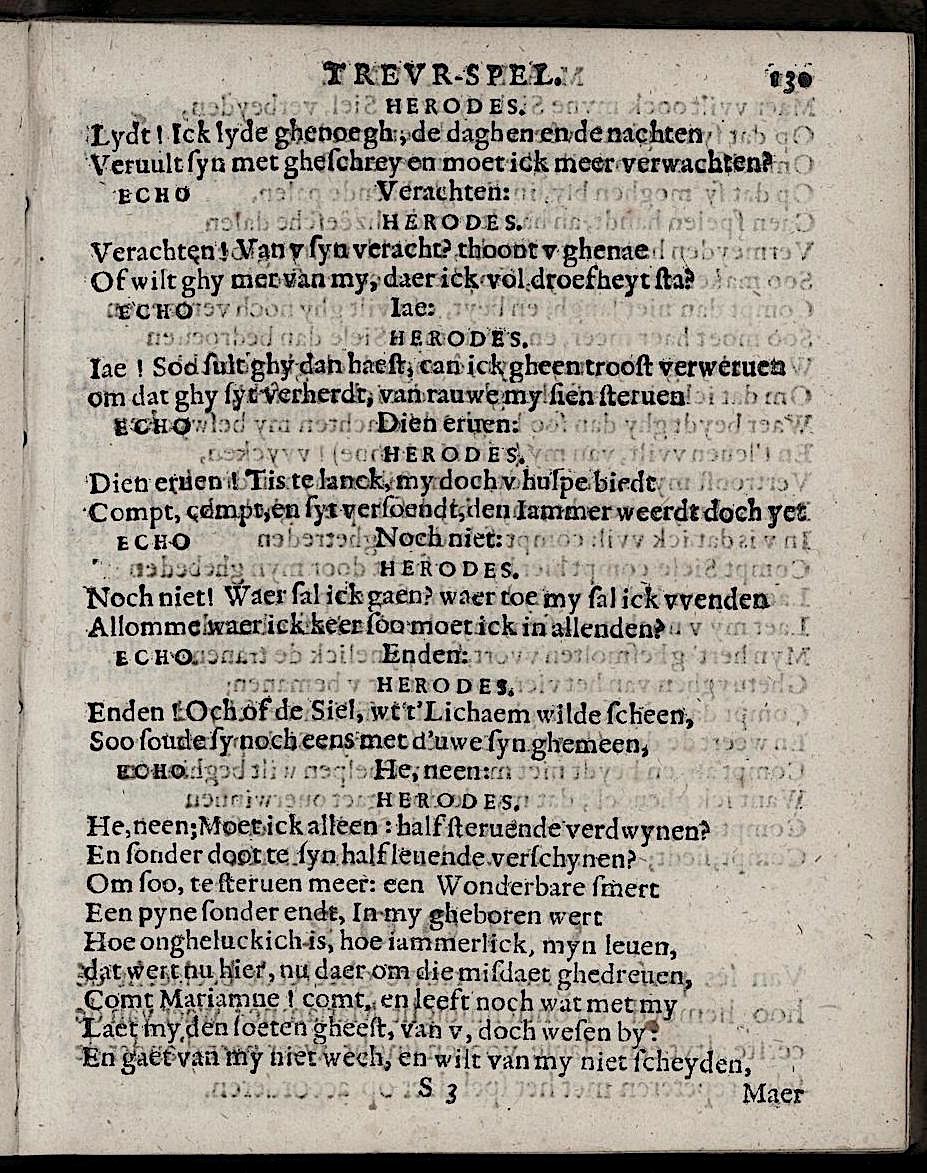 TREVR-SPEL. 130
HERODES.
Lydt! Ick lyde ghenoegh, de daghen en de nachten
Veruult syn met gheschrey en moet ick meer verwachten?
ECHO Verachten:
HERODES.
Verachten! Van v syn veracht? thoont v ghenae
Of wilt ghy met van my, daer ick vol droefheyt sta?
ECHO Iae:
HERODES.
Iae! Soo sult ghy dan haest, can ick gheen troost verweruen
om dat ghy syt verherdt, van rauwe my sien steruen
ECHO Dien eruen:
HERODES.
Dien eruen! Tis te lanck, my doch v hulpe biedt,
Compt, compt, en syt versoendt, den Iammer weerdt doch yet
ECHO Noch niet:
HERODES.
Noch niet! Waer sal ick gaen? waer toe my sal ick vvenden
Allomme waer ick keer soo moet ick in allenden?
ECHO. Enden:
HERODES.
Enden! Och of de Siel, wt t'Lichaem wilde scheen,
Soo soude sy noch eens met d'uwe syn ghemeen,
ECHO. He, neen:
HERODES.
He, neen; Moet ick alleen: half steruende verdwynen?
En sonder doot te syn half leuende verschynen?
Om soo, te steruen meer: een Wonderbare smert
Een pyne sonder endt, In my gheboren wert
Hoe ongheluckich is, hoe iammerlick, myn leuen,
dat wert nu hier, nu daer om die misdaet ghedreuen,
Comt Mariamne! comt, en leeft noch wat met my
Laet my den soeten gheest, van v, doch wesen by:
En gaet van my niet wech, en wilt van my niet scheyden,
S 3 Maer